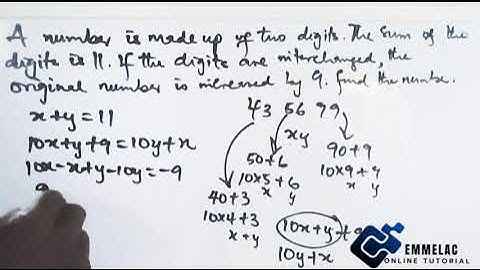 A number is made up of two digits. The sum of the
digits is 11. If the digits are interchanged, the
original number is increased by 9. Find the number.
x+y=11
10x+y+9=10y+x
10x-x+y-10y=-9
9
43 56 99
xy
50+6
10x5+6
x y
90+9
10x9+9
x y
40+3
10x4+3
x+y
10x+y+9
10y+x
EMMELAC
ONLINE TUTORIAL